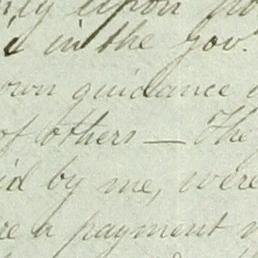 upon
in the Gov.
own guidance
of others — The
by me, were
a payment